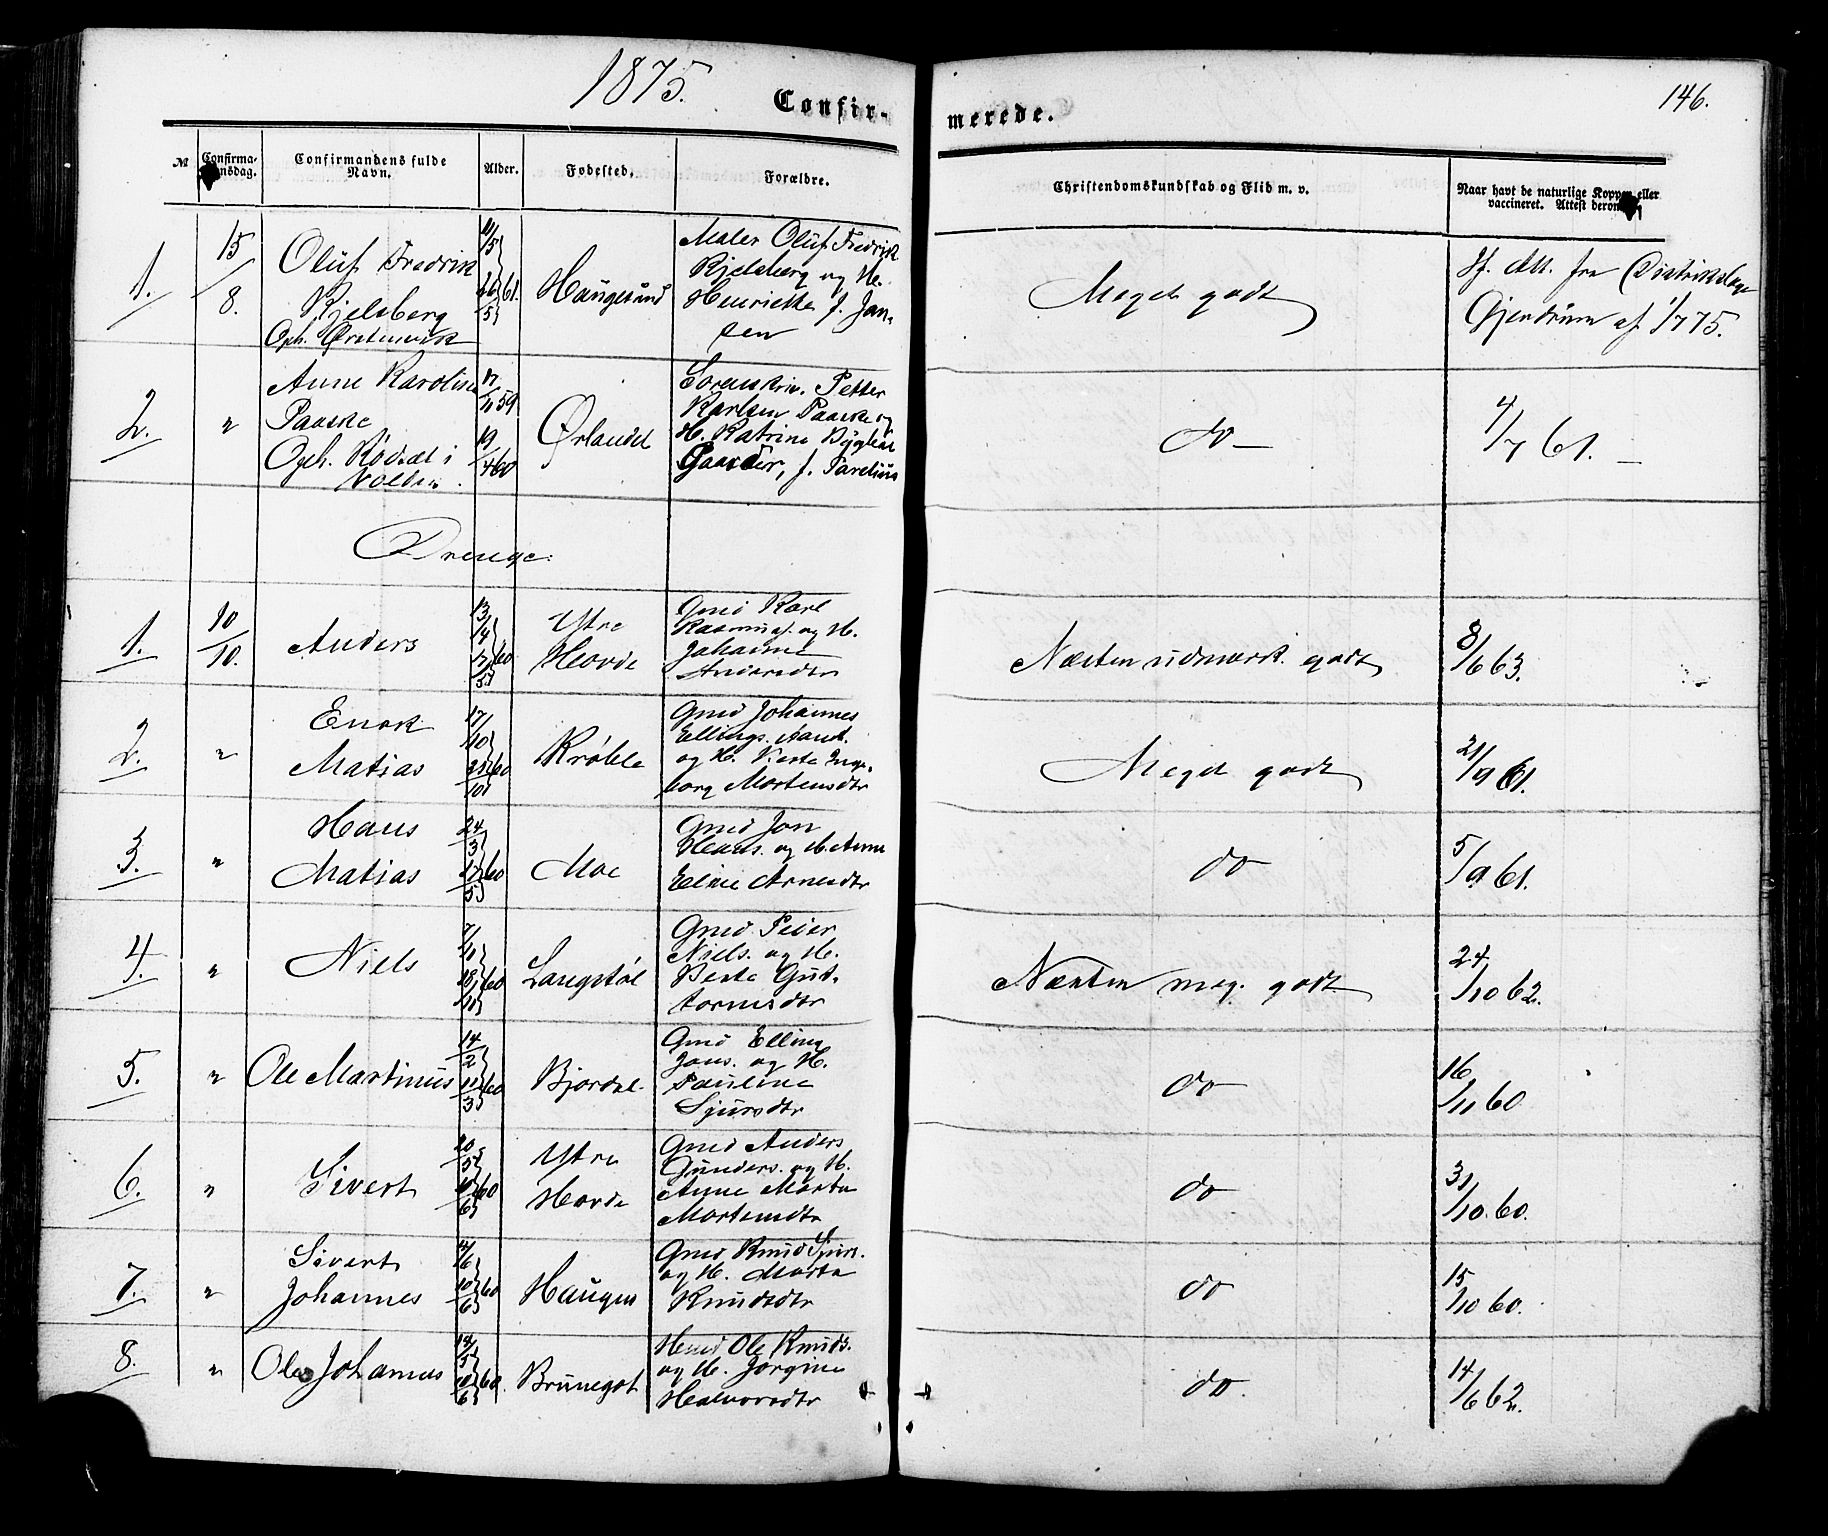 1875.
Confir-
merede.
146.
№
Confirma-
tionsdag.
Confirmandens fulde
Navn.
Alder.
Fødested.
Forældre.
Christendomskundskab og Flid m. v.
Naar havt de naturlige Kopper eller
vaccineret. Attest derom.
1.
15/8.
Oluf Fredrik
Kjelsberg
Oph.
11/5
26/5 61.
Haugesund
Maler Oluf Fredrik
Kjelsberg og H.
Henrikke f. Jan-
sen
Meget godt
Af. Att. fra
Gjendrum af 1/7 75.
2.
"
Anne Karoline
Paaske
Oph. Rødsæt i
Volden.
17/11 59
19/4 60
Ørlandet
Sorenskriv. Petter
Karlsen Paaske og
H. Katrine
f. Parelius
do —
4/7 61. —
Drenge.
1.
10/10.
Anders
13/14
17/5 60
Ytre
Hovde
Gmd Karl
Rasmus. og H.
Johanne
Andersdtr
Næsten udmærk. godt
8/6 63.
2.
"
Enok
Matias
17/10
21/10 60
Krøble
Gmd Johannes
Ellings.
og H. Berte Inge-
borg Mortensdtr
Meget godt
21/9 61.
3.
"
Hans
Matias
24/3
27/5 60
Moe
Gmd Jon
Hans. og H. Anne
Eline Arnesdtr
do
5/9 61.
4.
"
Niels
7/11
18/11 60
Langstøl
Gmd. Peder
Niels. og H.
Berte Gut-
tormsdtr
Næsten meg. godt
24/10 62.
5.
"
Ole Martinus
14/2
11/3 60
Bjørdal
Gmd Elling
Jons. og H.
Pauline
Sjursdtr
do
16/11 60
6.
"
Sivert
20/5
10/6 60
Ytre
Hovde
Gmd Anders
Gunders. og H.
Anne Marta
Mortensdtr
do
31/10. 60.
7.
"
Sivert
Johannes
4/6
10/6 60
Haugen
Gmd Knud Sjurs.
og H. Marta
Knudsdtr
do
15/10 60.
8.
"
Ole Johannes
14/5
10/6 60.
Brunegot
Hmd Ole Knuds.
og H. Jørgine
Halvorsdtr
do.
14/6 62.